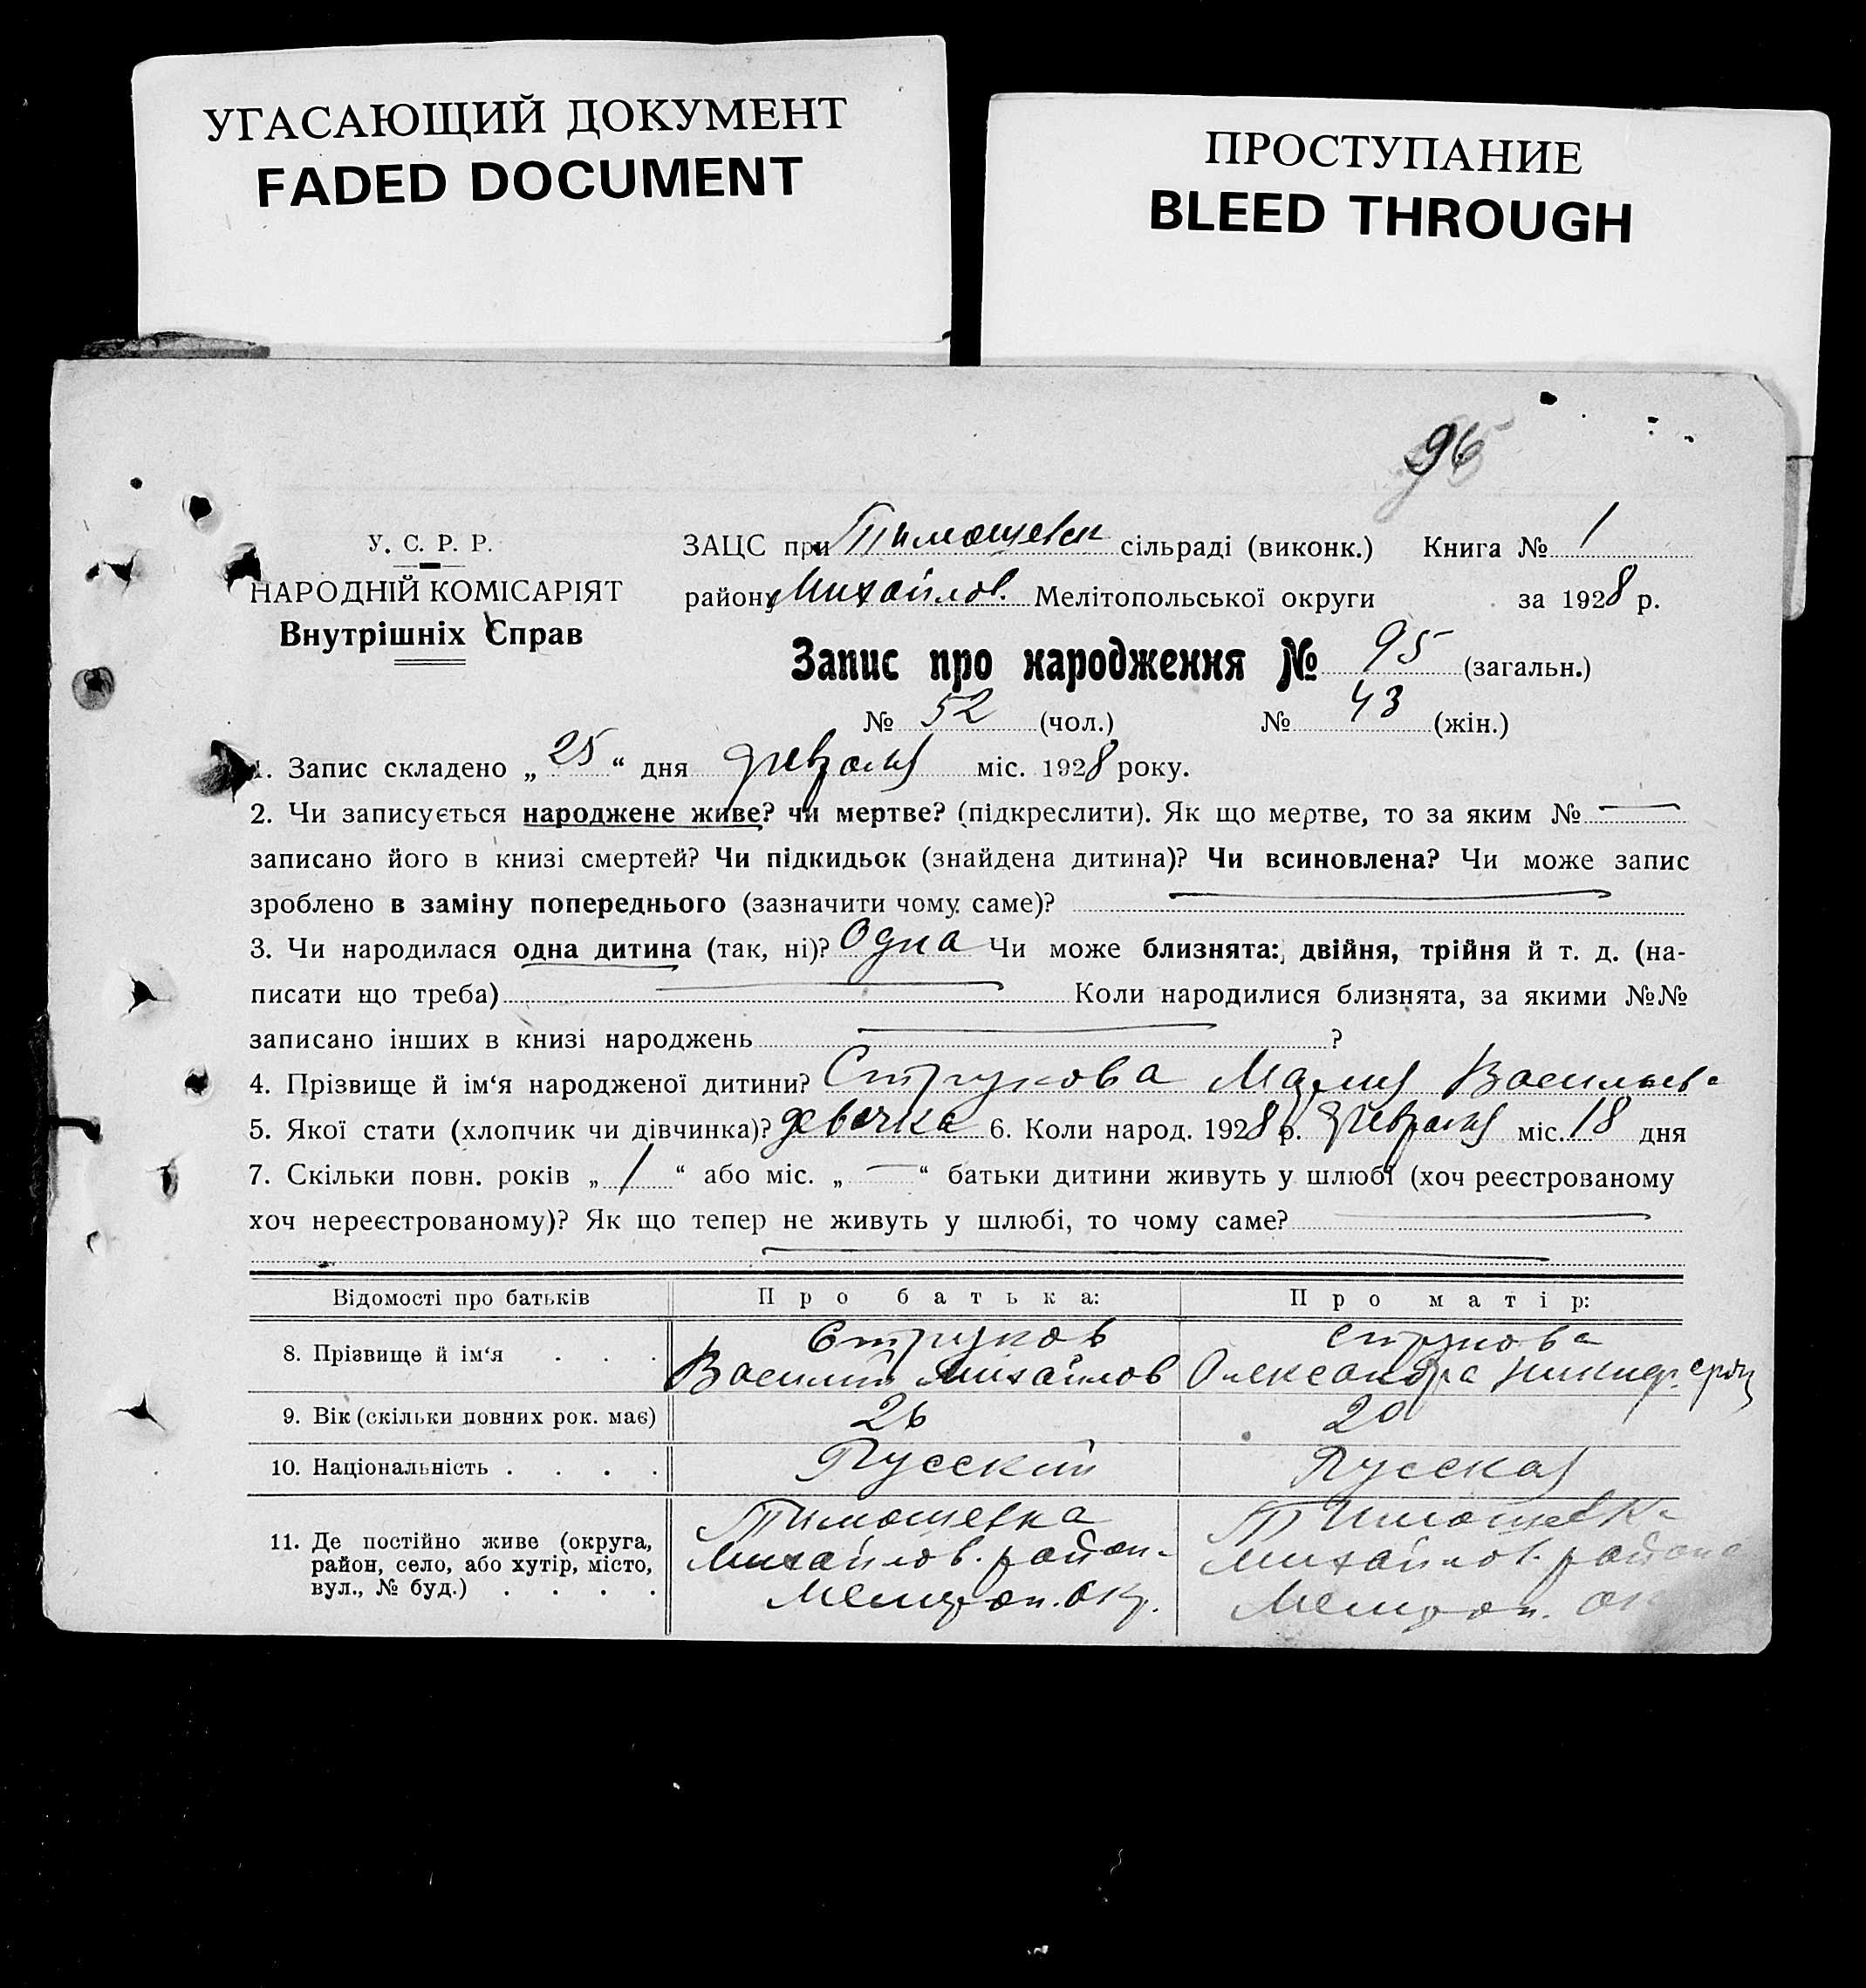 УГАСАЮЩИЙ ДОКУМЕНТ
FADED DOCUMENT
ПРОСТУПАНИЕ
BLEED THROUGH
96
У. С. Р. Р.
НАРОДНІЙ КОМІСАРІЯТ
Внутрішніх Справ
ЗАЦС при Тимошевск сільраді (виконк.) Книга № 1
району Михайлов. Мелітопольської округи за 1928 р.
Запис про народження № 95 (загальн.)
№ 52 (чол.) № 43 (жін.)
1. Запис складено „ 25 “ дня февраля міс. 1928 року.
2. Чи записується народжене живе? чи мертве? (підкреслити). Як що мертве, то за яким №
записано його в книзі смертей? Чи підкидьок (знайдена дитина)? Чи всиновлена? Чи може запис
зроблено в заміну попереднього (зазначити чому саме)?
3. Чи народилася одна дитина (так, ні)? Одна Чи може близнята: двійня, трійня й т. д. (на-
писати що треба) Коли народилися близнята, за якими №№
записано інших в книзі народжень ?
4. Прізвище й ім‘я народженої дитини? Струкова Мария Васильев
5. Якої стати (хлопчик чи дівчинка)? девочка 6. Коли народ. 1928 р. февраля міс. 18 дня
7. Скільки повн. років „ 1 “ або міс. „ — “ батьки дитини живуть у шлюбі (хоч реєстрованому
хоч нереєстрованому)? Як що тепер не живуть у шлюбі, то чому саме?
Відомості про батьків Про батька: Про матір:
8. Прізвище й ім‘я . . . Струков Василий Михайлов Струкова Олександра
9. Вік (скільки повних рок. має) 26 20
10. Національність . . . . Русский Русская
11. Де постійно живе (округа, Тимошевка Тимошевка
район, село, або хутір, місто, Михайлов. район Михайлов. района
вул., № буд.) . . . . Мелитоп. окр. Мелитоп. ок